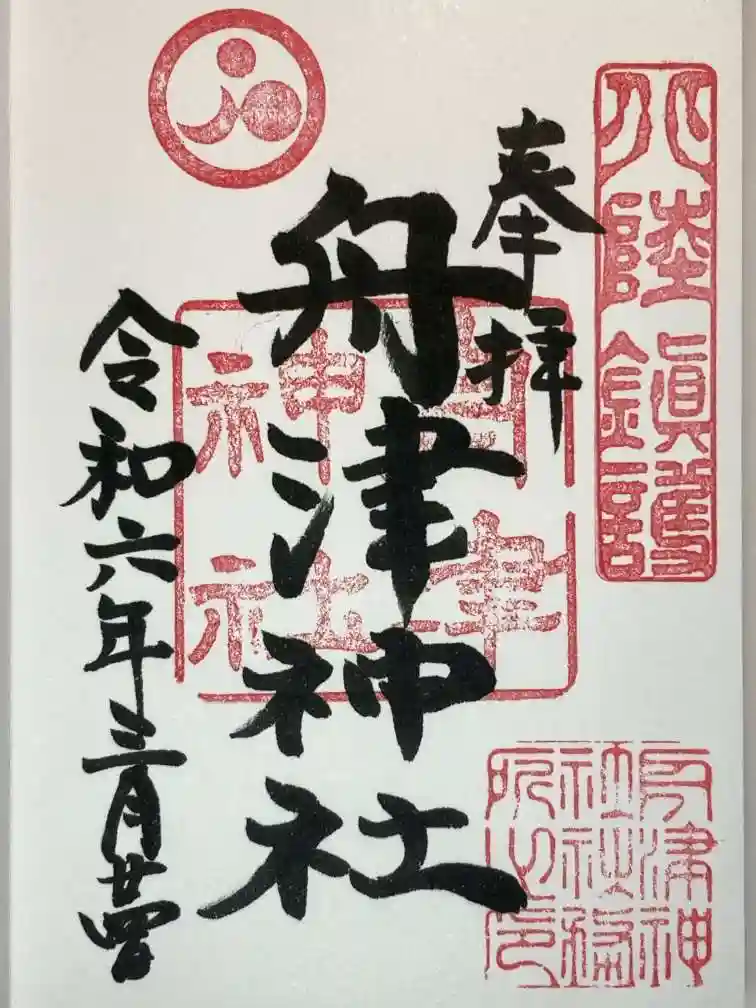 北陸鎭護
奉拝
舟津神社
舟津
神社
舟津神
社社務
所之印
令和六年三月廿